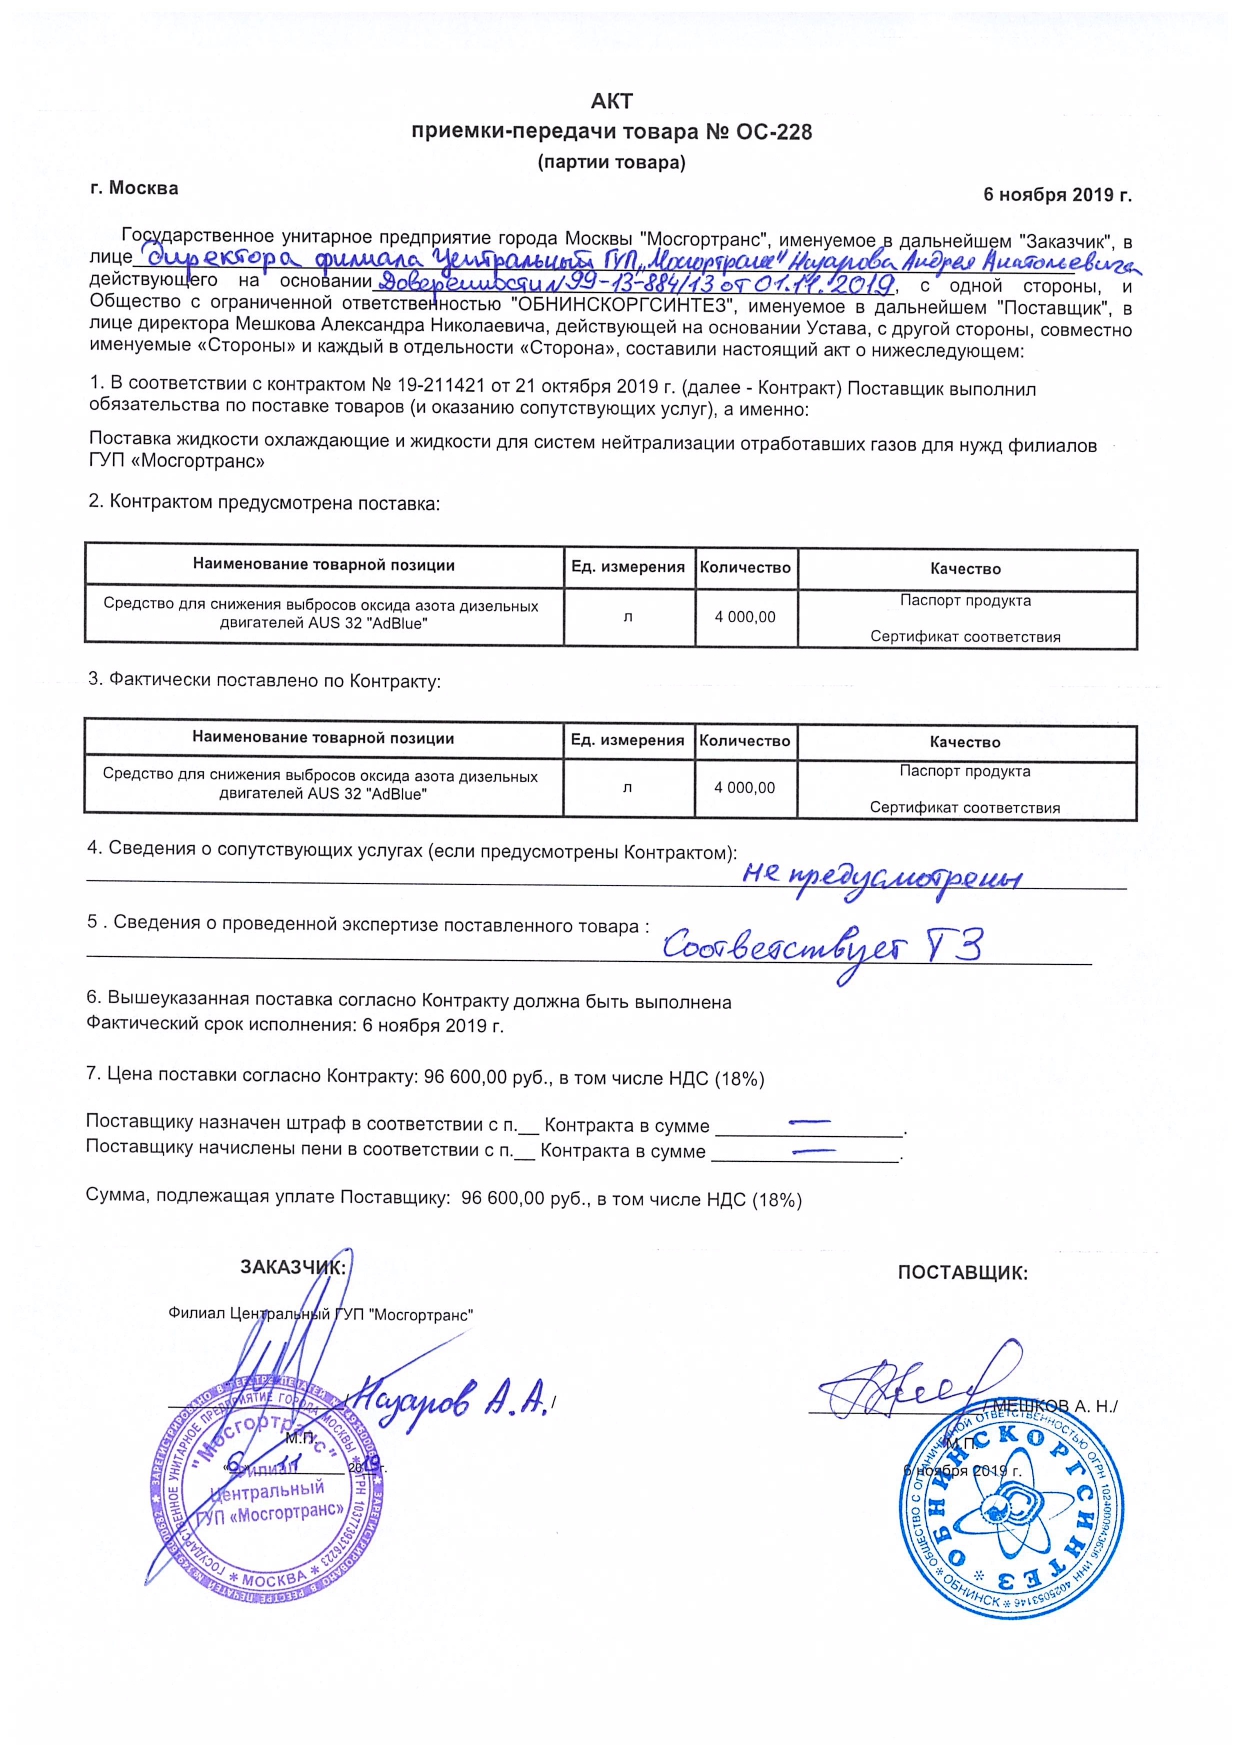 АКТ
приемки-передачи товара № ОС-228
(партии товара)
г. Москва
6 ноября 2019 г.
Государственное унитарное предприятие города Москвы "Мосгортранс", именуемое в дальнейшем "Заказчик", в
лице директора филиала Центральный ГУП "Мосгортранс" Назарова Андрея Анатольевича
действующего на основании Доверенности N 99-13-884/13 от 01.11.2019, с одной стороны, и
Общество с ограниченной ответственностью "ОБНИНСКОРГСИНТЕЗ", именуемое в дальнейшем "Поставщик", в
лице директора Мешкова Александра Николаевича, действующей на основании Устава, с другой стороны, совместно
именуемые «Стороны» и каждый в отдельности «Сторона», составили настоящий акт о нижеследующем:
1. В соответствии с контрактом № 19-211421 от 21 октября 2019 г. (далее - Контракт) Поставщик выполнил
обязательства по поставке товаров (и оказанию сопутствующих услуг), а именно:
Поставка жидкости охлаждающие и жидкости для систем нейтрализации отработавших газов для нужд филиалов
ГУП «Мосгортранс»
2. Контрактом предусмотрена поставка:
Наименование товарной позиции Ед. измерения Количество Качество
Средство для снижения выбросов оксида азота дизельных
двигателей AUS 32 "AdBlue"
л
4 000,00
Паспорт продукта
Сертификат соответствия
3. Фактически поставлено по Контракту:
Наименование товарной позиции Ед. измерения Количество Качество
Средство для снижения выбросов оксида азота дизельных
двигателей AUS 32 "AdBlue"
л
4 000,00
Паспорт продукта
Сертификат соответствия
4. Сведения о сопутствующих услугах (если предусмотрены Контрактом):
не предусмотрены
5 . Сведения о проведенной экспертизе поставленного товара :
Соответствует ТЗ
6. Вышеуказанная поставка согласно Контракту должна быть выполнена
Фактический срок исполнения: 6 ноября 2019 г.
7. Цена поставки согласно Контракту: 96 600,00 руб., в том числе НДС (18%)
Поставщику назначен штраф в соответствии с п.__ Контракта в сумме — .
Поставщику начислены пени в соответствии с п.__ Контракта в сумме — .
Сумма, подлежащая уплате Поставщику: 96 600,00 руб., в том числе НДС (18%)
ЗАКАЗЧИК:
Филиал Центральный ГУП "Мосгортранс"
/ Назаров А.А. /
М.П.
«6» 11 2019 г.
"Мосгортранс"
Филиал
Центральный
ГУП «Мосгортранс»
ГОСУДАРСТВЕННОЕ УНИТАРНОЕ ПРЕДПРИЯТИЕ ГОРОДА МОСКВЫ
* МОСКВА *
ПОСТАВЩИК:
/ МЕШКОВ А. Н./
М.П.
6 ноября 2019 г.
ОБНИНСКОРГСИНТЕЗ
ОБЩЕСТВО С ОГРАНИЧЕННОЙ ОТВЕТСТВЕННОСТЬЮ
* ОБНИНСК *
ИНН 4025053146